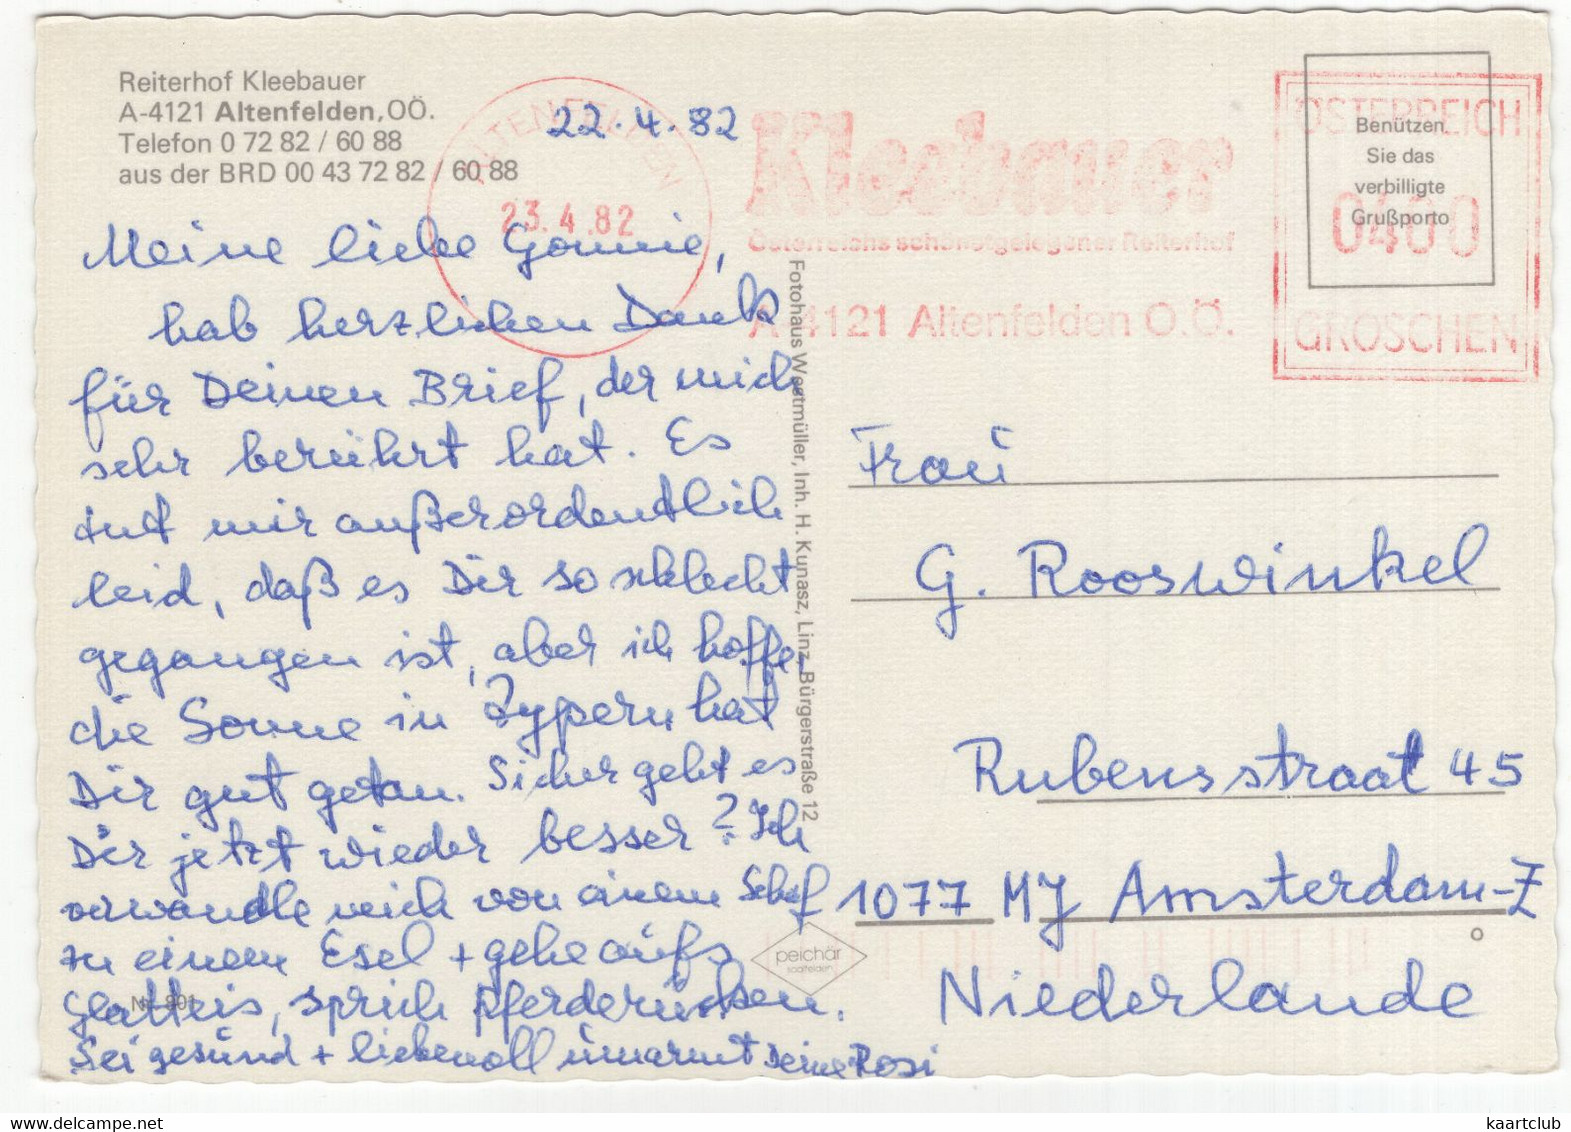 Reiterhof Kleebauer
A-4121 Altenfelden, OÖ.
Telefon 0 72 82 / 60 88
aus der BRD 00 43 72 82 / 60 88
22.4.82
ALTENFELDEN
23.4.82
Kleebauer
Österreichs schönstgelegener Reiterhof
A-4121 Altenfelden O.Ö.
ÖSTERREICH
0400
GROSCHEN
Benützen
Sie das
verbilligte
Grußporto
Meine liebe Gonnie,
hab herzlichen Dank
für Deinen Brief, der mich
sehr berührt hat. Es
tut mir außerordentlich
leid, daß es Dir so schlecht
gegangen ist, aber ich hoffe,
die Sonne in Zypern hat
Dir gut getan. Sicher geht es
Dir jetzt wieder besser? Ich
verwandle mich von einem Schaf
zu einem Esel + gehe aufs
Glatteis, sprich Pferderücken.
Sei gesund + liebevoll umarmt Deine Rosi
Nr. 801
Fotohaus Westmüller, Inh. H. Kunasz, Linz, Bürgerstraße 12
peichär
saalfelden
Frau
G. Rooswinkel
Rubensstraat 45
1077 MJ Amsterdam-Z
o
Niederlande
kaartclub